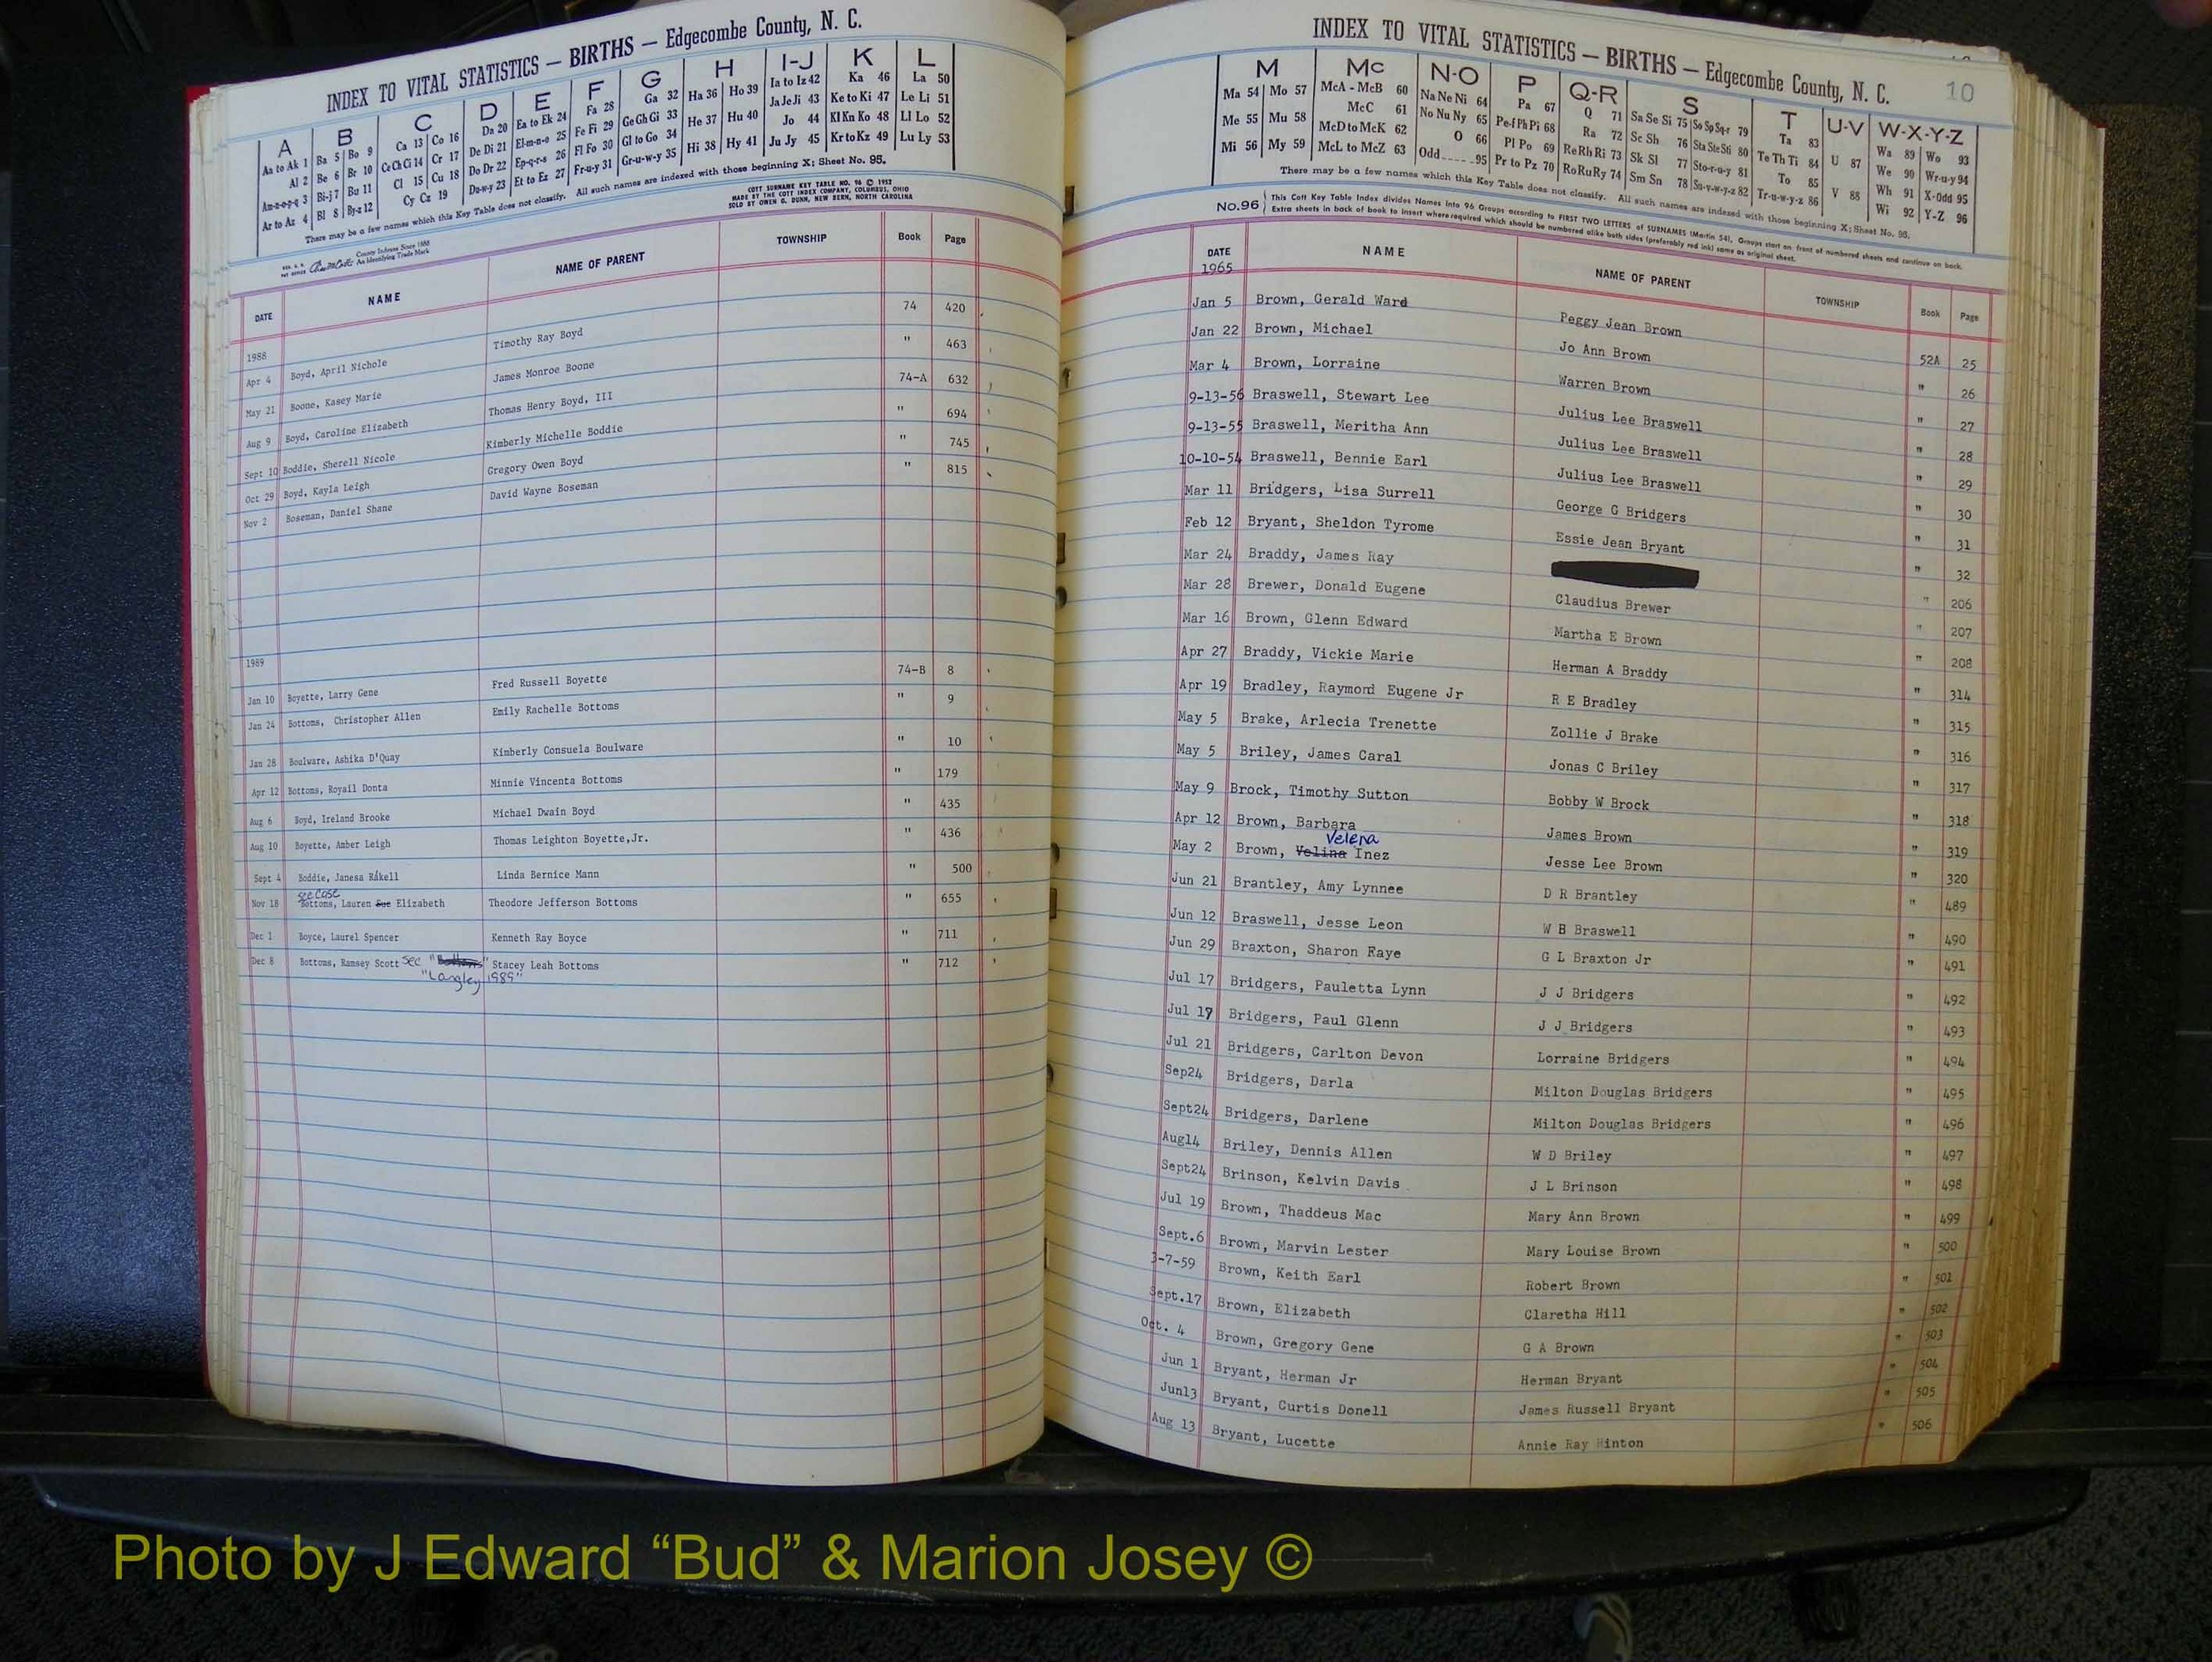 INDEX TO VITAL STATISTICS — BIRTHS — Edgecombe County, N. C.
A B C D E F G H I-J K L
Aa to Ak 1 Ba 5 Bo 9 Ca 13 Co 16 Da 20 Ea to Ek 24 Fa 28 Ga 32 Ha 36 Ho 39 Ia to Iz 42 Ka 46 La 50
Al 2 Be 6 Br 10 Ce Ch Ci 14 Cr 17 De Di 21 El-m-n-o 25 Fe Fi 29 Ge Gh Gi 33 He 37 Hu 40 Ja Je Ji 43 Ke to Ki 47 Le Li 51
Am-n-o-p-q 3 Bi-j 7 Bu 11 Cl 15 Cu 18 Do Dr 22 Ep-q-r-s 26 Fl Fo 30 Gl to Go 34 Hi 38 Hy 41 Jo 44 Kl Kn Ko 48 Ll Lo 52
Ar to Az 4 Bl 8 By-z 12 Cy Cz 19 Du-w-y 23 Et to Ez 27 Fr-u-y 31 Gr-u-w-y 35 Ju Jy 45 Kr to Kz 49 Lu Ly 53
There may be a few names which this Key Table does not classify. All such names are indexed with those beginning X; Sheet No. 95.
COTT SURNAME KEY TABLE NO. 96 © 1952
MADE BY THE COTT INDEX COMPANY, COLUMBUS, OHIO
SOLD BY OWEN G. DUNN, NEW BERN, NORTH CAROLINA
County Indexes Since 1888
An Identifying Trade Mark
DATE NAME NAME OF PARENT TOWNSHIP Book Page
1988
Apr 4 Boyd, April Nichole Timothy Ray Boyd 74 420
May 21 Boone, Kasey Marie James Monroe Boone " 463
Aug 9 Boyd, Caroline Elizabeth Thomas Henry Boyd, III 74-A 632
Sept 10 Boddie, Sherell Nicole Kimberly Michelle Boddie " 694
Oct 29 Boyd, Kayla Leigh Gregory Owen Boyd " 745
Nov 2 Boseman, Daniel Shane David Wayne Boseman " 815
1989
Jan 10 Boyette, Larry Gene Fred Russell Boyette 74-B 8
Jan 24 Bottoms, Christopher Allen Emily Rachelle Bottoms " 9
Jan 28 Boulware, Ashika D'Quay Kimberly Consuela Boulware " 10
Apr 12 Bottoms, Royail Donta Minnie Vincenta Bottoms " 179
Aug 6 Boyd, Ireland Brooke Michael Dwain Boyd " 435
Aug 10 Boyette, Amber Leigh Thomas Leighton Boyette,Jr. " 436
Sept 4 Boddie, Janesa Rákell Linda Bernice Mann " 500
see case
Nov 18 Bottoms, Lauren Sue Elizabeth Theodore Jefferson Bottoms " 655
Dec 1 Boyce, Laurel Spencer Kenneth Ray Boyce " 711
Dec 8 Bottoms, Ramsey Scott see "Bottoms" Stacey Leah Bottoms " 712
"Langley 1989"
INDEX TO VITAL STATISTICS — BIRTHS — Edgecombe County, N. C. 10
M Mc N-O P Q-R S T U-V W-X-Y-Z
Ma 54 Mo 57 McA - McB 60 Na Ne Ni 64 Pa 67 Q 71 Sa Se Si 75 So Sp Sq-r 79 Ta 83 U 87 Wa 89 Wo 93
Me 55 Mu 58 McC 61 No Nu Ny 65 Pe-f Ph Pi 68 Ra 72 Sc Sh 76 Sta Ste Sti 80 Te Th Ti 84 V 88 We 90 Wr-u-y 94
Mi 56 My 59 McD to McK 62 O 66 Pl Po 69 Re Rh Ri 73 Sk Sl 77 Sto-r-u-y 81 To 85 Wh 91 X-Odd 95
McL to McZ 63 Odd 95 Pr to Pz 70 Ro Ru Ry 74 Sm Sn 78 Su-v-w-y-z 82 Tr-u-w-y-z 86 Wi 92 Y-Z 96
There may be a few names which this Key Table does not classify. All such names are indexed with those beginning X; Sheet No. 95.
NO.96 This Cott Key Table Index divides Names into 96 Groups according to FIRST TWO LETTERS of SURNAMES (Martin 54). Groups start on front of numbered sheets and continue on back.
Extra sheets in back of book to insert where required which should be numbered alike both sides (preferably red ink) same as original sheet.
DATE NAME NAME OF PARENT TOWNSHIP Book Page
1965
Jan 5 Brown, Gerald Ward Peggy Jean Brown 52A 25
Jan 22 Brown, Michael Jo Ann Brown " 26
Mar 4 Brown, Lorraine Warren Brown " 27
9-13-56 Braswell, Stewart Lee Julius Lee Braswell " 28
9-13-55 Braswell, Meritha Ann Julius Lee Braswell " 29
10-10-54 Braswell, Bennie Earl Julius Lee Braswell " 30
Mar 11 Bridgers, Lisa Surrell George G Bridgers " 31
Feb 12 Bryant, Sheldon Tyrome Essie Jean Bryant " 32
Mar 24 Braddy, James Ray " 206
Mar 28 Brewer, Donald Eugene Claudius Brewer " 207
Mar 16 Brown, Glenn Edward Martha E Brown " 208
Apr 27 Braddy, Vickie Marie Herman A Braddy " 314
Apr 19 Bradley, Raymond Eugene Jr R E Bradley " 315
May 5 Brake, Arlecia Trenette Zollie J Brake " 316
May 5 Briley, James Caral Jonas C Briley " 317
May 9 Brock, Timothy Sutton Bobby W Brock " 318
Apr 12 Brown, Barbara James Brown " 319
Velena
May 2 Brown, Velina Inez Jesse Lee Brown " 320
Jun 21 Brantley, Amy Lynnee D R Brantley " 489
Jun 12 Braswell, Jesse Leon W B Braswell " 490
Jun 29 Braxton, Sharon Faye G L Braxton Jr " 491
Jul 17 Bridgers, Pauletta Lynn J J Bridgers " 492
Jul 17 Bridgers, Paul Glenn J J Bridgers " 493
Jul 21 Bridgers, Carlton Devon Lorraine Bridgers " 494
Sep24 Bridgers, Darla Milton Douglas Bridgers " 495
Sept24 Bridgers, Darlene Milton Douglas Bridgers " 496
Aug14 Briley, Dennis Allen W D Briley " 497
Sept24 Brinson, Kelvin Davis J L Brinson " 498
Jul 19 Brown, Thaddeus Mac Mary Ann Brown " 499
Sept.6 Brown, Marvin Lester Mary Louise Brown " 500
3-7-59 Brown, Keith Earl Robert Brown " 501
Sept.17 Brown, Elizabeth Claretha Hill " 502
Oct. 4 Brown, Gregory Gene G A Brown " 503
Jun 1 Bryant, Herman Jr Herman Bryant " 504
Jun13 Bryant, Curtis Donell James Russell Bryant " 505
Aug 13 Bryant, Lucette Annie Ray Hinton " 506
Photo by J Edward “Bud” & Marion Josey ©